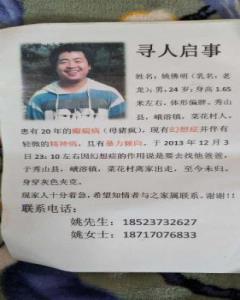 寻人启事
姓名：姚佛明（乳名：老
龙）；男，24 岁；身高 1.65
米左右，体形偏胖。秀山
县，峨溶镇，菜花村人。
患有 20 年的癫痫病（母猪疯），现有幻想症并伴有
轻微的精神病，且有暴力倾向。于 2013 年 12 月 3
日 23：10 左右因幻想症的作用说是要去找他爸爸，
于秀山县，峨溶镇，菜花村离家出走，至今未归。
身穿灰色夹克。
现家人十分着急，希望知情者与之家属联系。谢谢！！
联系电话：
姚先生：18523732627
姚女士：18717076833